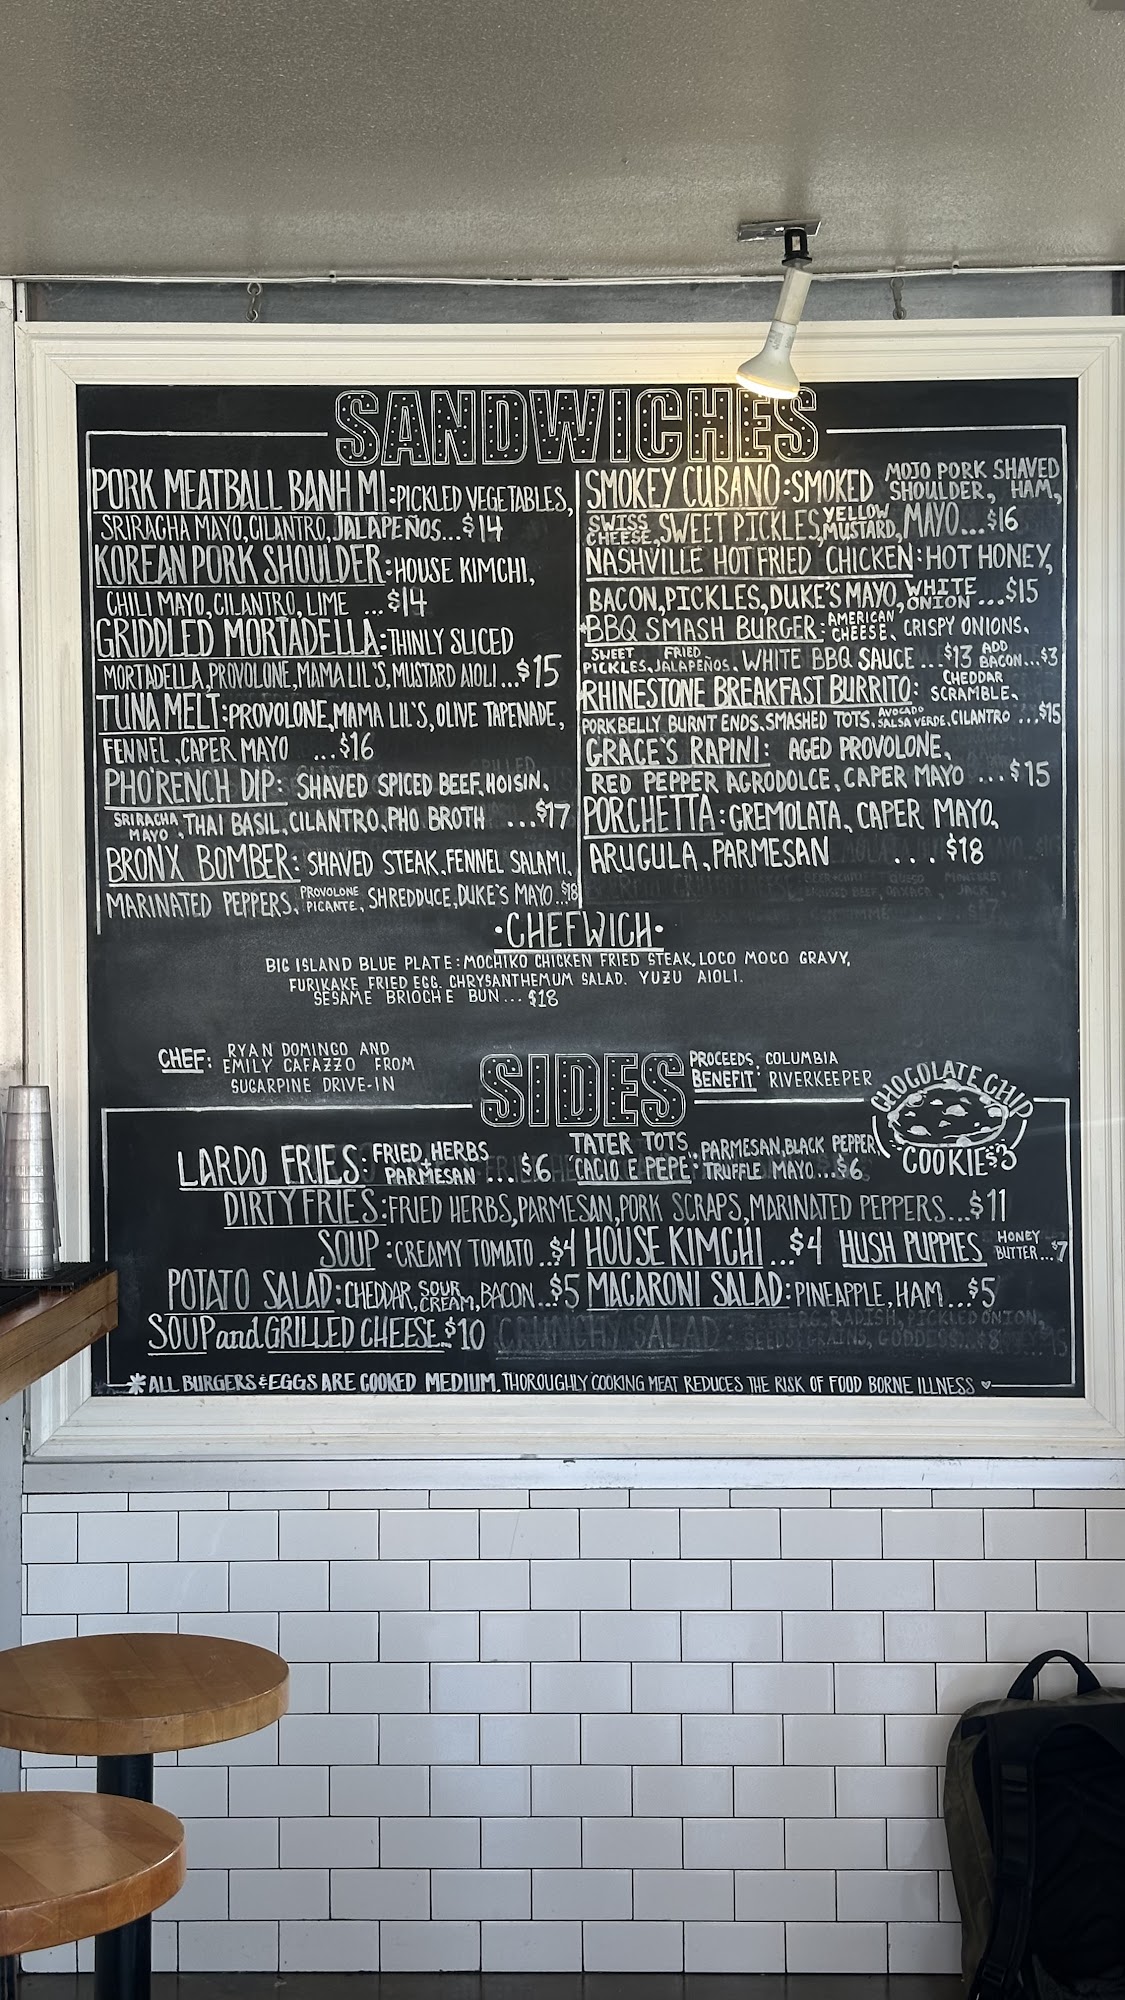 SANDWICHES
PORK MEATBALL BANH MI: PICKLED VEGETABLES,
SRIRACHA MAYO, CILANTRO, JALAPEÑOS...$14
KOREAN PORK SHOULDER: HOUSE KIMCHI,
CHILI MAYO, CILANTRO, LIME ...$14
GRIDDLED MORTADELLA: THINLY SLICED
MORTADELLA, PROVOLONE, MAMA LIL'S, MUSTARD AIOLI...$15
TUNA MELT: PROVOLONE, MAMA LIL'S, OLIVE TAPENADE,
FENNEL, CAPER MAYO ...$16
PHO'RENCH DIP: SHAVED SPICED BEEF, HOISIN,
SRIRACHA MAYO, THAI BASIL, CILANTRO, PHO BROTH ...$17
BRONX BOMBER: SHAVED STEAK, FENNEL SALAMI,
MARINATED PEPPERS, PROVOLONE PICANTE, SHREDDUCE, DUKE'S MAYO...$18
SMOKEY CUBANO: SMOKED MOJO PORK SHOULDER, SHAVED HAM,
SWISS CHEESE, SWEET PICKLES, YELLOW MUSTARD, MAYO...$16
NASHVILLE HOT FRIED CHICKEN: HOT HONEY,
BACON, PICKLES, DUKE'S MAYO, WHITE ONION ...$15
*BBQ SMASH BURGER: AMERICAN CHEESE, CRISPY ONIONS,
SWEET PICKLES, FRIED JALAPEÑOS, WHITE BBQ SAUCE ...$13 ADD BACON...$3
RHINESTONE BREAKFAST BURRITO: CHEDDAR SCRAMBLE,
PORK BELLY BURNT ENDS, SMASHED TOTS, AVOCADO SALSA VERDE, CILANTRO ...$15
GRACE'S RAPINI: AGED PROVOLONE,
RED PEPPER AGRODOLCE, CAPER MAYO ...$15
PORCHETTA: GREMOLATA, CAPER MAYO,
ARUGULA, PARMESAN ...$18
•CHEFWICH•
BIG ISLAND BLUE PLATE: MOCHIKO CHICKEN FRIED STEAK, LOCO MOCO GRAVY,
FURIKAKE FRIED EGG, CHRYSANTHEMUM SALAD, YUZU AIOLI,
SESAME BRIOCHE BUN... $18
CHEF: RYAN DOMINGO AND
EMILY CAFAZZO FROM
SUGARPINE DRIVE-IN
PROCEEDS BENEFIT: COLUMBIA RIVERKEEPER
SIDES
CHOCOLATE CHIP
COOKIE $3
LARDO FRIES: FRIED HERBS + PARMESAN ...$6
TATER TOTS CACIO E PEPE: PARMESAN, BLACK PEPPER, TRUFFLE MAYO...$6
DIRTY FRIES: FRIED HERBS, PARMESAN, PORK SCRAPS, MARINATED PEPPERS...$11
SOUP: CREAMY TOMATO ...$4 HOUSE KIMCHI ...$4 HUSH PUPPIES HONEY BUTTER...$7
POTATO SALAD: CHEDDAR, SOUR CREAM, BACON...$5 MACARONI SALAD: PINEAPPLE, HAM...$5
SOUP and GRILLED CHEESE...$10 CRUNCHY SALAD: ICEBERG, RADISH, PICKLED ONION,
SEEDS, GRAINS, GODDESS...$8
*ALL BURGERS & EGGS ARE COOKED MEDIUM. THOROUGHLY COOKING MEAT REDUCES THE RISK OF FOOD BORNE ILLNESS ♡